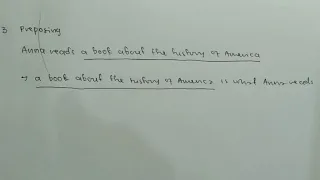 3. Preposing
Anna reads a book about the history of America
→ a book about the history of America is what Anna reads